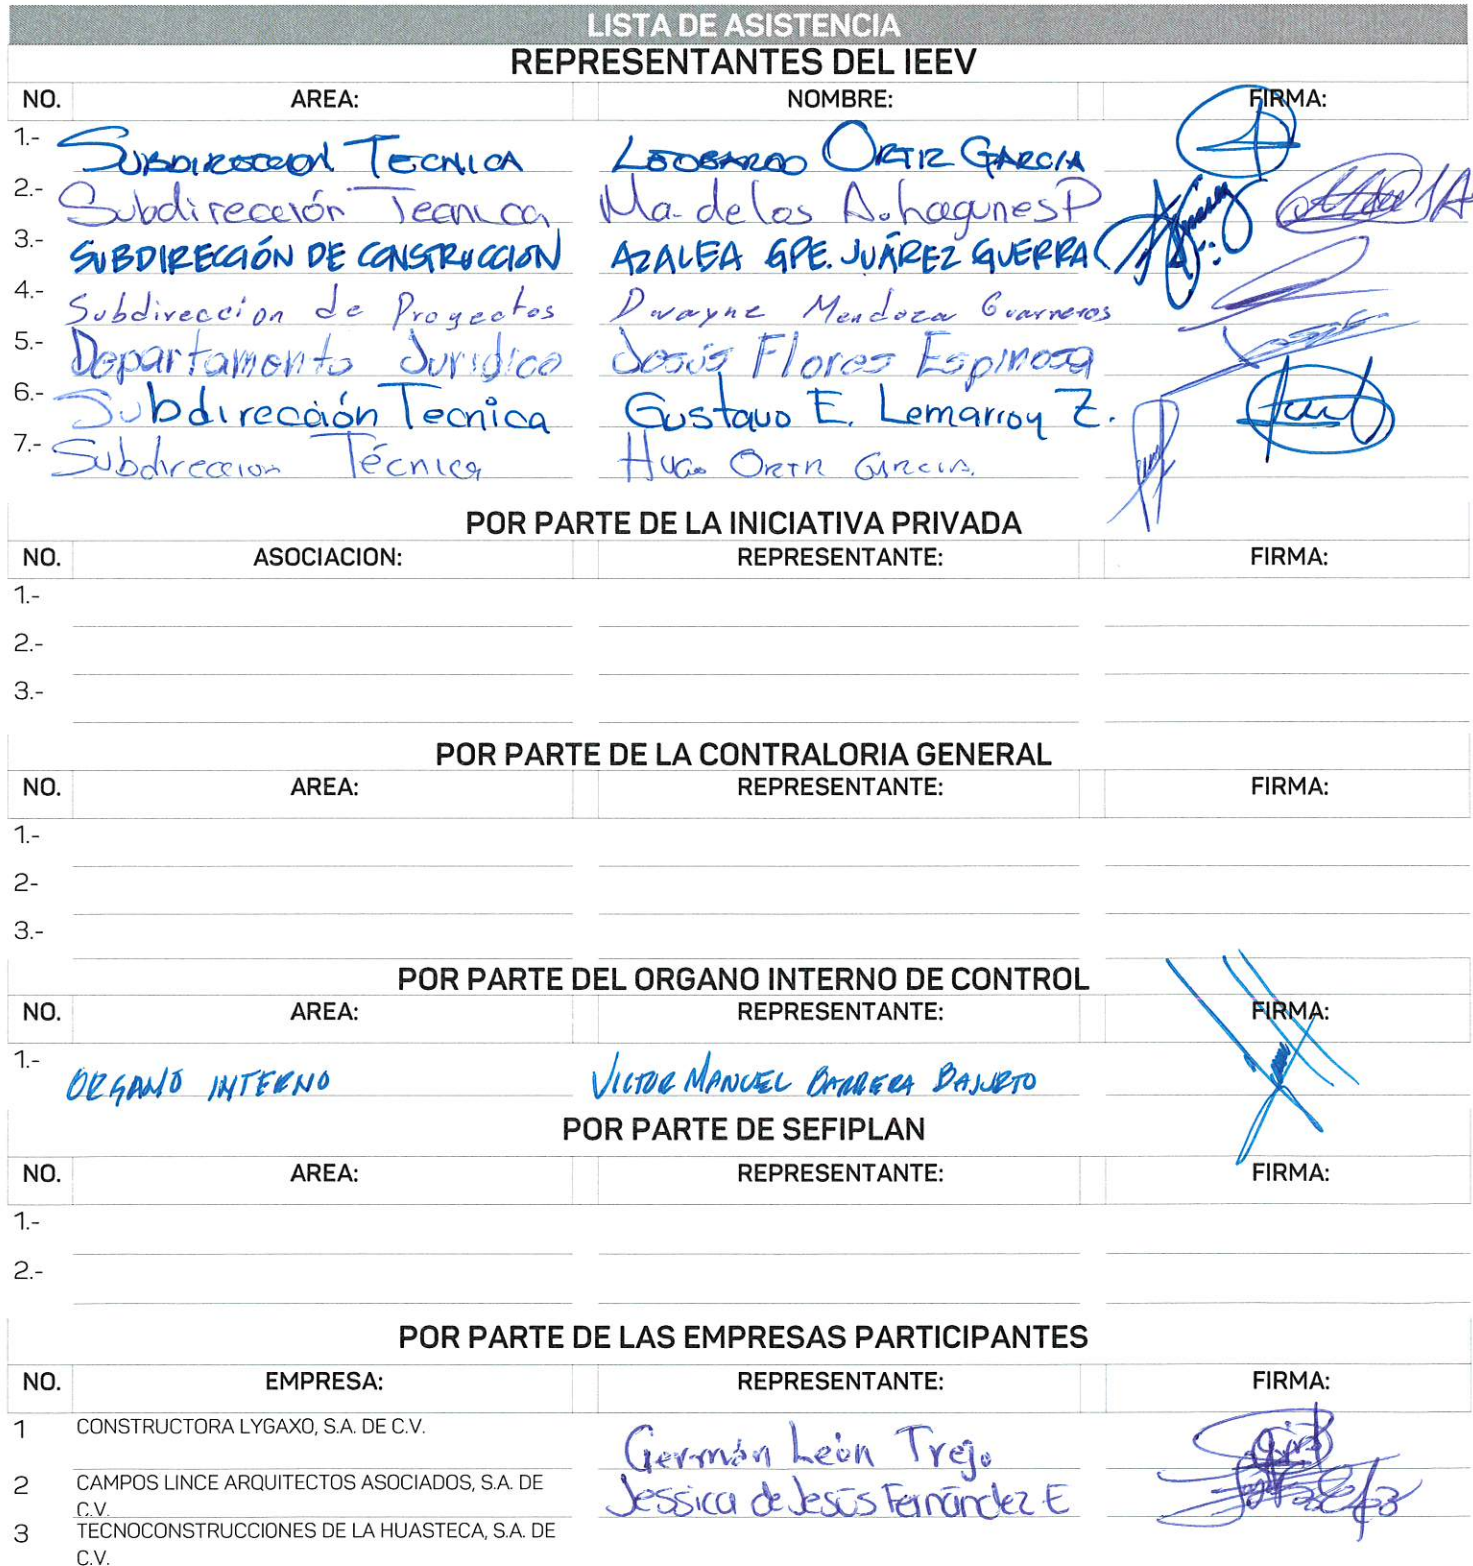 LISTA DE ASISTENCIA
REPRESENTANTES DEL IEEV
NO. AREA: NOMBRE: FIRMA:
1.- SUBDIRECCION TECNICA LEOBARDO ORTIZ GARCIA
2.- Subdirección Tecnica Ma. de los A. P
3.- SUBDIRECCIÓN DE CONSTRUCCION AZALEA GPE. JUÁREZ GUERRA
4.- Subdireccion de Proyectos Dwayne Mendoza Guarneros
5.- Departamento Juridico Jesús Flores Espinosa
6.- Subdirección Tecnica Gustavo E. Lemarroy Z.
7.- Subdireccion Técnica Hugo Ortiz Garcia.
POR PARTE DE LA INICIATIVA PRIVADA
NO. ASOCIACION: REPRESENTANTE: FIRMA:
1.-
2.-
3.-
POR PARTE DE LA CONTRALORIA GENERAL
NO. AREA: REPRESENTANTE: FIRMA:
1.-
2-
3.-
POR PARTE DEL ORGANO INTERNO DE CONTROL
NO. AREA: REPRESENTANTE: FIRMA:
1.- ORGANO INTERNO VICTOR MANUEL BARRERA BASURTO
POR PARTE DE SEFIPLAN
NO. AREA: REPRESENTANTE: FIRMA:
1.-
2.-
POR PARTE DE LAS EMPRESAS PARTICIPANTES
NO. EMPRESA: REPRESENTANTE: FIRMA:
1 CONSTRUCTORA LYGAXO, S.A. DE C.V. Germán León Trejo
2 CAMPOS LINCE ARQUITECTOS ASOCIADOS, S.A. DE
C.V. Jessica de Jesús Fernández E
3 TECNOCONSTRUCCIONES DE LA HUASTECA, S.A. DE
C.V.